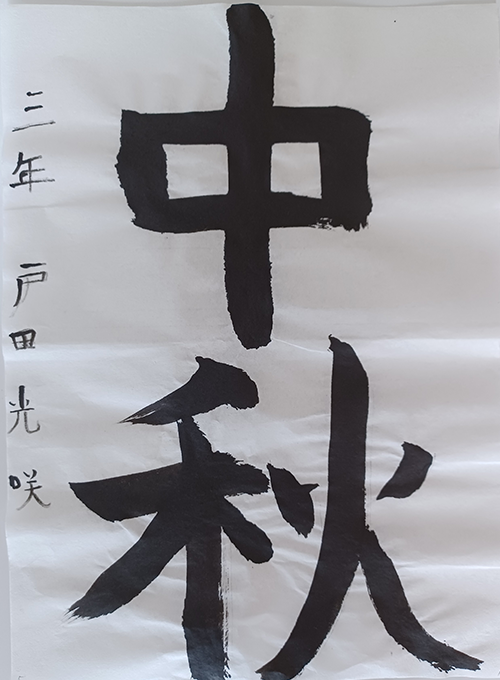 中秋
三年 戸田光咲